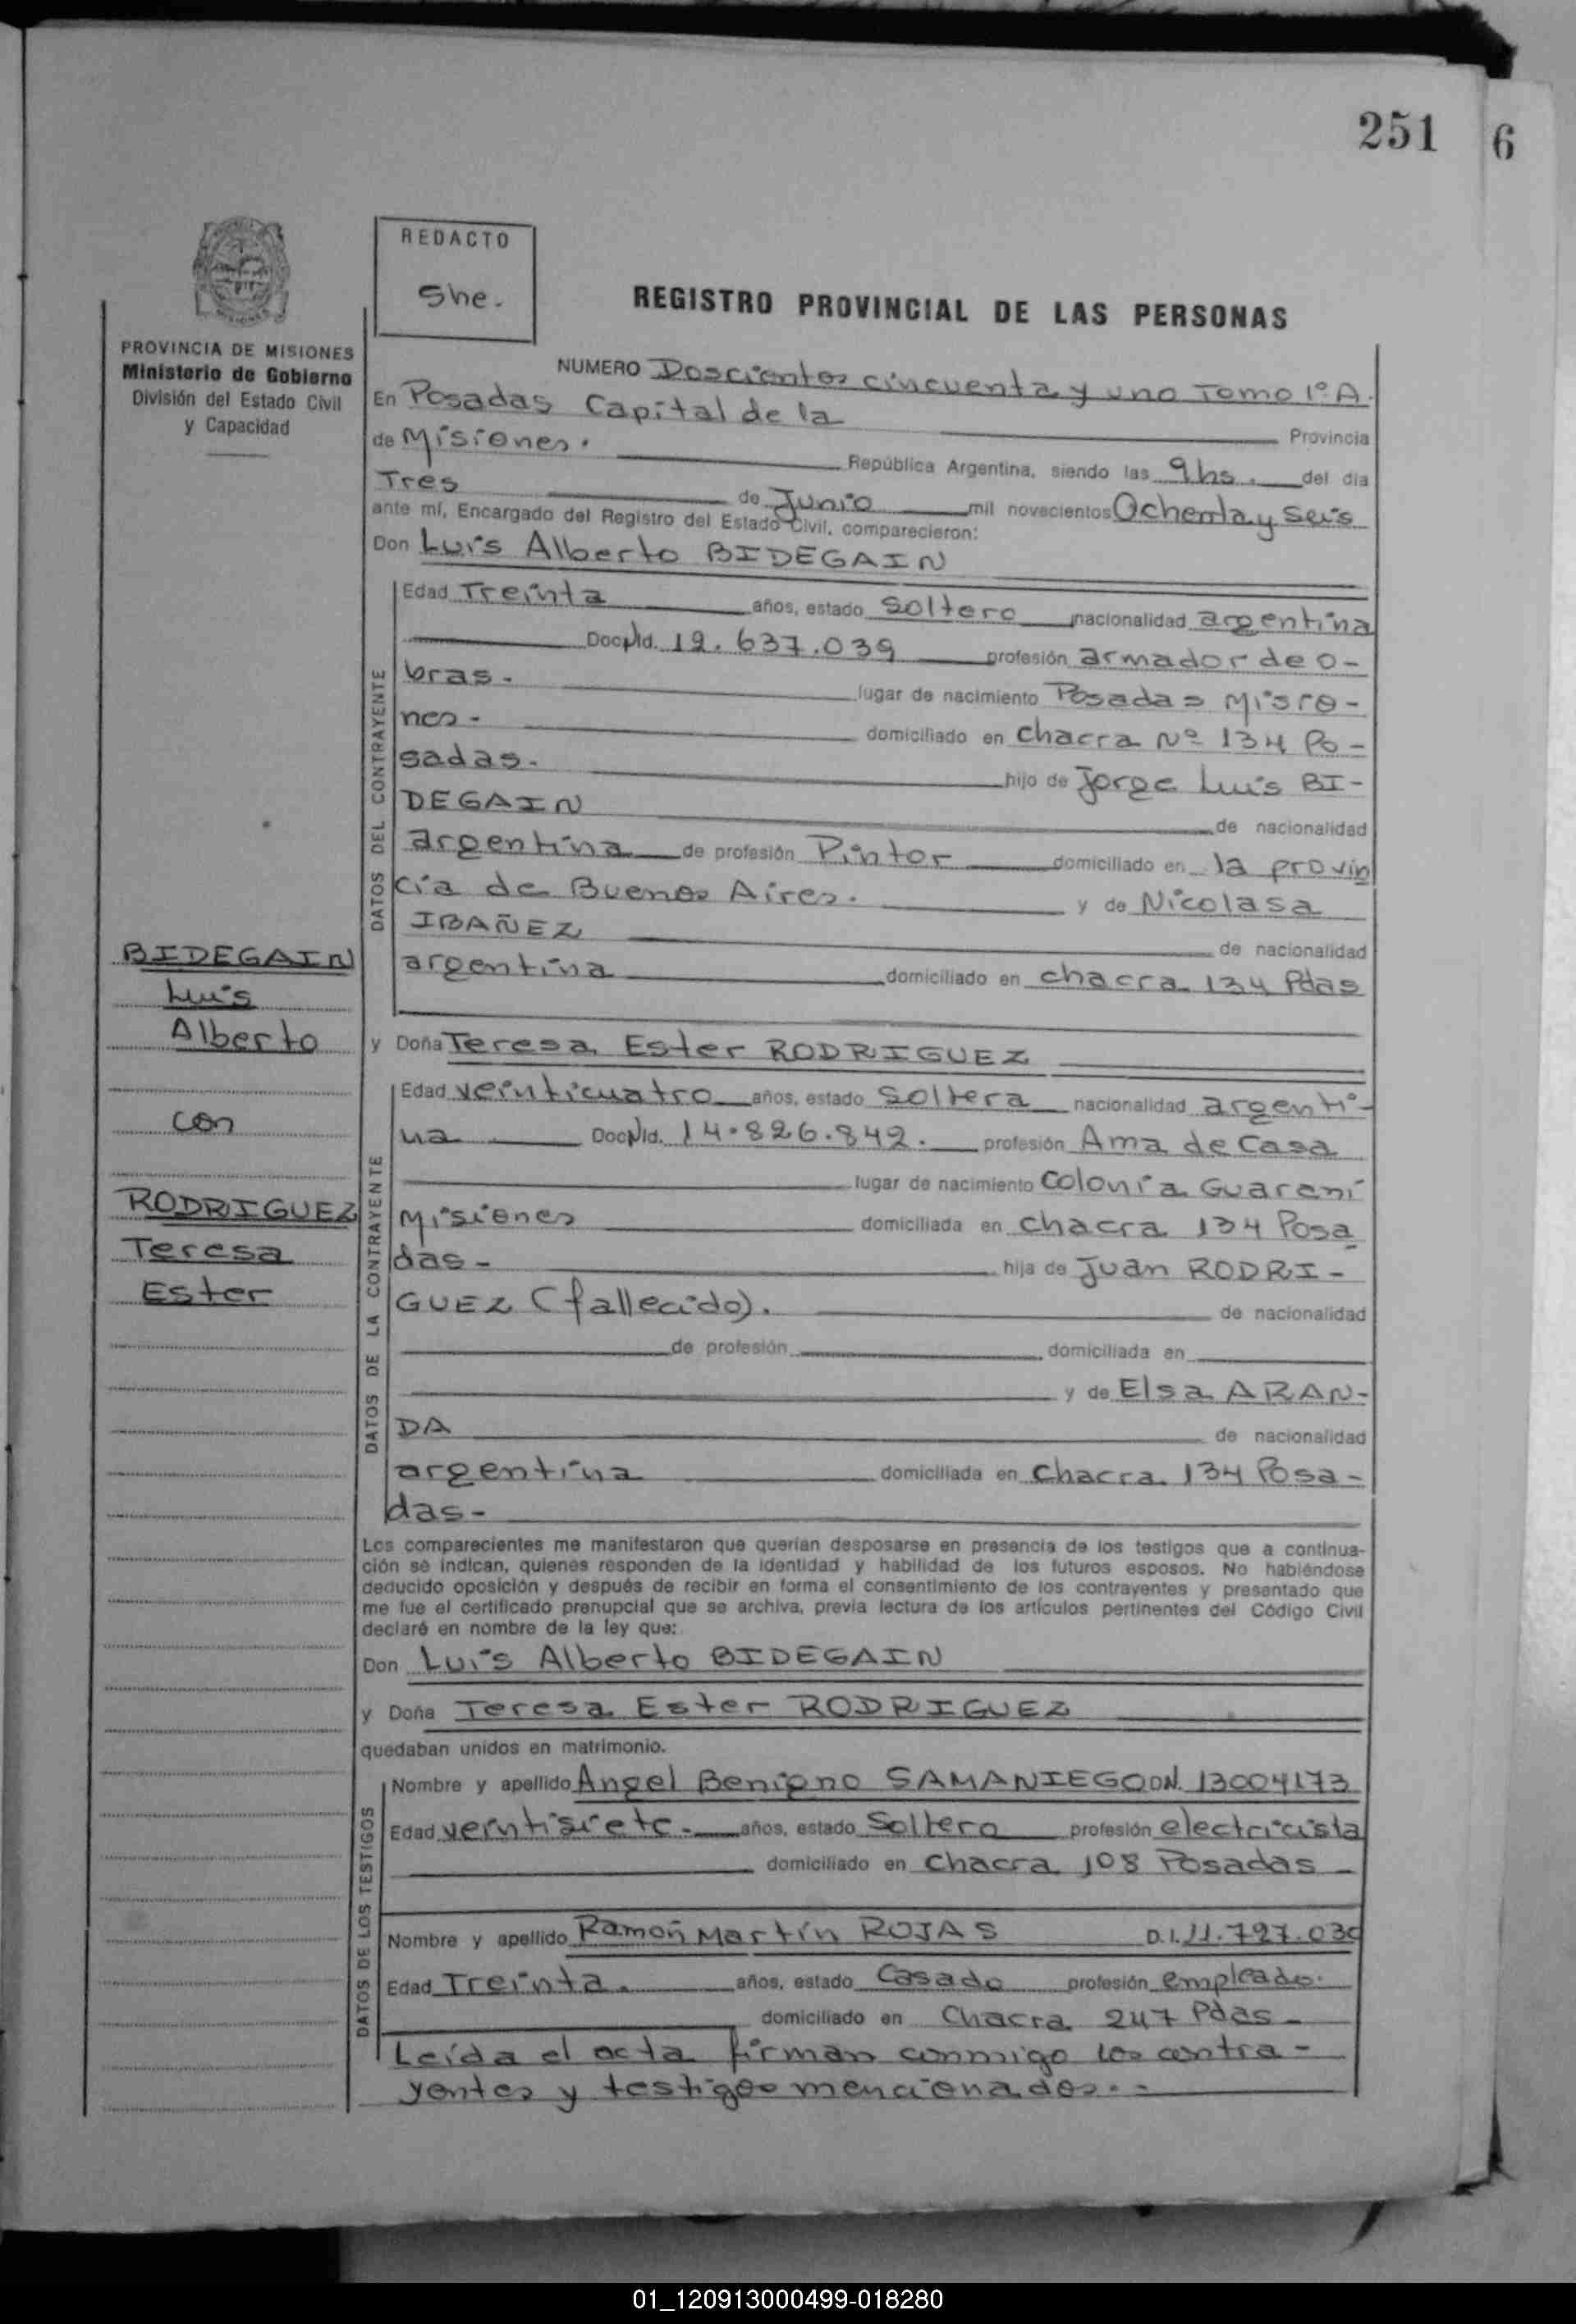 251
6
REDACTO
She.
REGISTRO PROVINCIAL DE LAS PERSONAS
PROVINCIA DE MISIONES
Ministerio de Gobierno
División del Estado Civil
y Capacidad
NUMERO Doscientos cincuenta y uno Tomo 1º A.
En Posadas Capital de la Provincia
de Misiones. República Argentina, siendo las 9hs. del día
Tres de Junio mil novecientos Ochenta y Seis
ante mí, Encargado del Registro del Estado Civil, comparecieron:
Don Luis Alberto BIDEGAIN
DATOS DEL CONTRAYENTE
Edad Treinta años, estado Soltero nacionalidad argentina
Doc. Nid. 12.637.039 profesión armador de o-
bras. lugar de nacimiento Posadas Misio-
nes- domiciliado en Chacra Nº 134 Po-
sadas. hijo de Jorge Luis BI-
DEGAIN de nacionalidad
argentina de profesión Pintor domiciliado en la provin
cia de Buenos Aires. y de Nicolasa
IBAÑEZ de nacionalidad
argentina domiciliado en chacra 134 Pdas
y Doña Teresa Ester RODRIGUEZ
DATOS DE LA CONTRAYENTE
Edad veinticuatro años, estado Soltera nacionalidad argenti-
na Doc. Nid. 14.826.842. profesión Ama de Casa
lugar de nacimiento Colonia Guarani
Misiones domiciliada en chacra 134 Posa
das- hija de Juan RODRI-
GUEZ (fallecido). de nacionalidad
de profesión domiciliada en
y de Elsa ARAN-
DA de nacionalidad
argentina domiciliada en Chacra 134 Posa-
das-
Los comparecientes me manifestaron que querían desposarse en presencia de los testigos que a continua-
ción se indican, quienes responden de la identidad y habilidad de los futuros esposos. No habiéndose
deducido oposición y después de recibir en forma el consentimiento de los contrayentes y presentado que
me fue el certificado prenupcial que se archiva, previa lectura de los artículos pertinentes del Código Civil
declaré en nombre de la ley que:
Don Luis Alberto BIDEGAIN
y Doña Teresa Ester RODRIGUEZ
quedaban unidos en matrimonio.
DATOS DE LOS TESTIGOS
Nombre y apellido Angel Benigno SAMANIEGO DN. 13004173
Edad veintisiete. años, estado Soltero profesión electricista
domiciliado en Chacra 108 Posadas
Nombre y apellido Ramón Martín ROJAS D.I. 11.727.030
Edad Treinta. años, estado Casado profesión empleado.
domiciliado en Chacra 247 Pdas
Leída el acta firman conmigo los contra-
yentes y testigos mencionados.-
BIDEGAIN
Luis
Alberto
con
RODRIGUEZ
Teresa
Ester
01_120913000499-018280